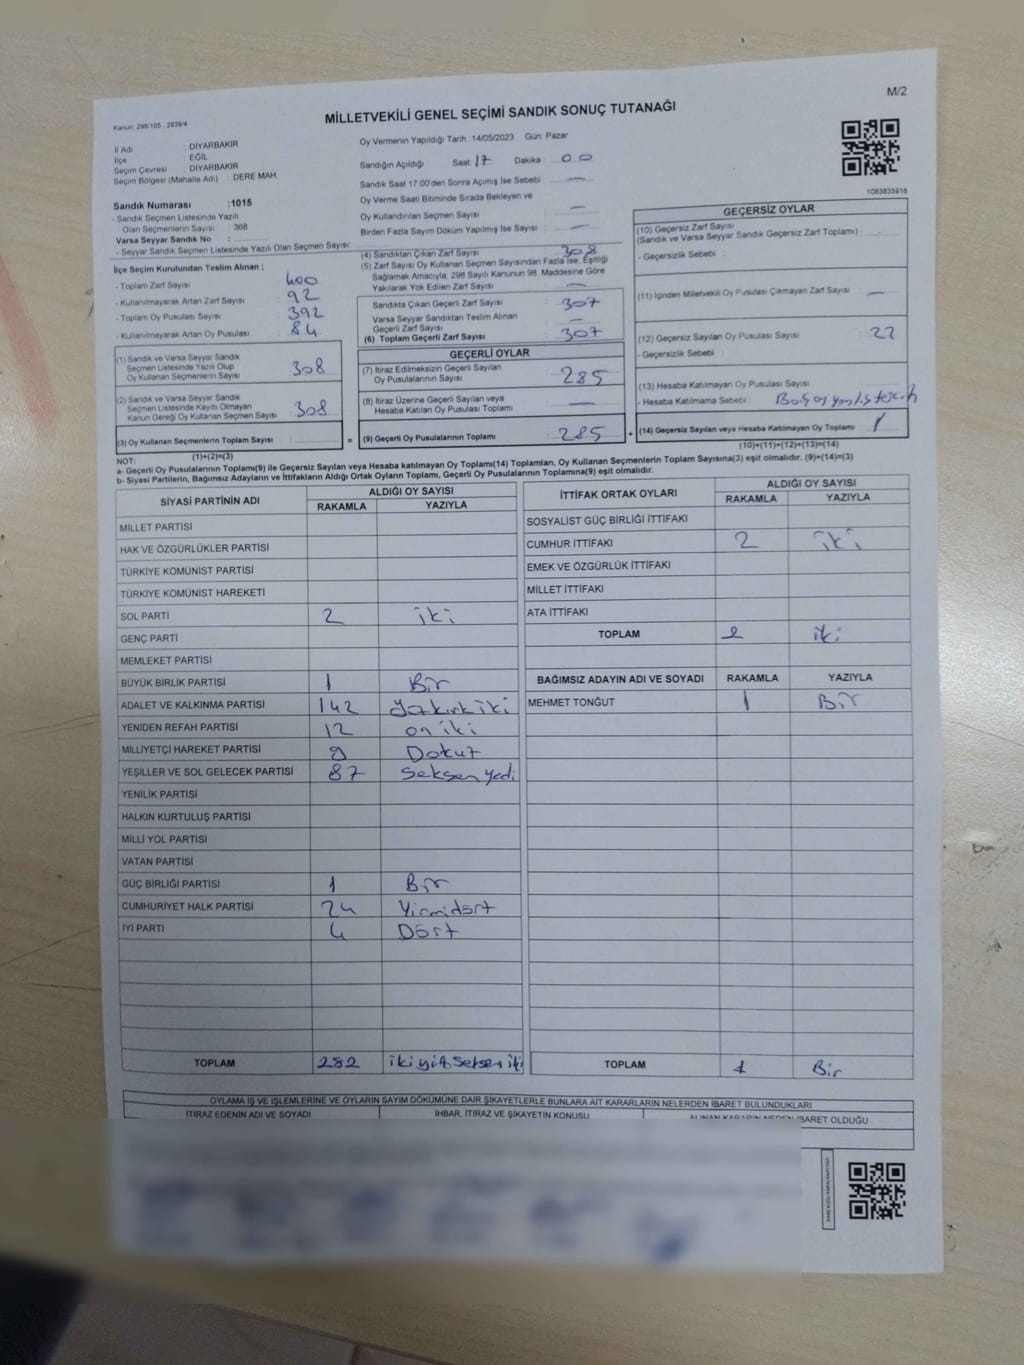 M/2
Kanun: 298/105 , 2839/4
MİLLETVEKİLİ GENEL SEÇİMİ SANDIK SONUÇ TUTANAĞI
İl Adı : DİYARBAKIR
İlçe : EĞİL
Seçim Çevresi : DİYARBAKIR
Seçim Bölgesi (Mahalle Adı) : DERE MAH.
Sandık Numarası :1015
- Sandık Seçmen Listesinde Yazılı
Olan Seçmenlerin Sayısı : 368
Varsa Seyyar Sandık No :
- Seyyar Sandık Seçmen Listesinde Yazılı Olan Seçmen Sayısı:
Oy Vermenin Yapıldığı Tarih :14/05/2023 Gün: Pazar
Sandığın Açıldığı Saat: 17 Dakika : 00
Sandık Saat 17:00'den Sonra Açmış İse Sebebi : —
Oy Verme Saati Bitiminde Sırada Bekleyen ve
Oy Kullandırılan Seçmen Sayısı —
Birden Fazla Sayım Döküm Yapılmış İse Sayısı : —
1083835916
İlçe Seçim Kurulundan Teslim Alınan ;
- Toplam Zarf Sayısı : 400
- Kullanılmayarak Artan Zarf Sayısı : 92
- Toplam Oy Pusulası Sayısı : 392
- Kullanılmayarak Artan Oy Pusulası : 84
(1) Sandık ve Varsa Seyyar Sandık
Seçmen Listesinde Yazılı Olup
Oy Kullanan Seçmenlerin Sayısı : 308
(2) Sandık ve Varsa Seyyar Sandık
Seçmen Listesinde Kayıtlı Olmayan
Kanun Gereği Oy Kullanan Seçmen Sayısı : 308
(3) Oy Kullanan Seçmenlerin Toplam Sayısı :
(1)+(2)=(3)
(4) Sandıktan Çıkan Zarf Sayısı : 308
(5) Zarf Sayısı Oy Kullanan Seçmen Sayısından Fazla İse, Eşitliği
Sağlamak Amacıyla; 298 Sayılı Kanunun 98. Maddesine Göre
Yakılarak Yok Edilen Zarf Sayısı : —
Sandıkta Çıkan Geçerli Zarf Sayısı : 307
Varsa Seyyar Sandıktan Teslim Alınan
Geçerli Zarf Sayısı : —
(6) Toplam Geçerli Zarf Sayısı : 307
GEÇERLİ OYLAR
(7) İtiraz Edilmeksizin Geçerli Sayılan
Oy Pusulalarının Sayısı : 285
(8) İtiraz Üzerine Geçerli Sayılan veya
Hesaba Katılan Oy Pusulası Toplamı : —
= (9) Geçerli Oy Pusulalarının Toplamı : 285 +
GEÇERSİZ OYLAR
(10) Geçersiz Zarf Sayısı
(Sandık ve Varsa Seyyar Sandık Geçersiz Zarf Toplamı) :
- Geçersizlik Sebebi :
(11) İçinden Milletvekili Oy Pusulası Çıkmayan Zarf Sayısı : —
(12) Geçersiz Sayılan Oy Pusulası Sayısı : 22
- Geçersizlik Sebebi :
(13) Hesaba Katılmayan Oy Pusulası Sayısı
- Hesaba Katılmama Sebebi :
(14) Geçersiz Sayılan veya Hesaba Katılmayan Oy Toplamı : 1
(10)+(11)+(12)+(13)=(14)
NOT:
a- Geçerli Oy Pusulalarının Toplamı(9) ile Geçersiz Sayılan veya Hesaba katılmayan Oy Toplamı(14) Toplamları, Oy Kullanan Seçmenlerin Toplam Sayısına(3) eşit olmalıdır. (9)+(14)=(3)
b- Siyasi Partilerin, Bağımsız Adayların ve İttifakların Aldığı Ortak Oyların Toplamı, Geçerli Oy Pusulalarının Toplamına(9) eşit olmalıdır.
SİYASİ PARTİNİN ADI ALDIĞI OY SAYISI
RAKAMLA YAZIYLA
MİLLET PARTİSİ
HAK VE ÖZGÜRLÜKLER PARTİSİ
TÜRKİYE KOMÜNİST PARTİSİ
TÜRKİYE KOMÜNİST HAREKETİ
SOL PARTİ 2 iki
GENÇ PARTİ
MEMLEKET PARTİSİ
BÜYÜK BİRLİK PARTİSİ 1 Bir
ADALET VE KALKINMA PARTİSİ 142
YENİDEN REFAH PARTİSİ 12 on iki
MİLLİYETÇİ HAREKET PARTİSİ 9 Dokuz
YEŞİLLER VE SOL GELECEK PARTİSİ 87 Seksen yedi
YENİLİK PARTİSİ
HALKIN KURTULUŞ PARTİSİ
MİLLİ YOL PARTİSİ
VATAN PARTİSİ
GÜÇ BİRLİĞİ PARTİSİ 1 Bir
CUMHURİYET HALK PARTİSİ 24 Yirmidört
İYİ PARTİ 4 Dört
TOPLAM 282
İTTİFAK ORTAK OYLARI ALDIĞI OY SAYISI
RAKAMLA YAZIYLA
SOSYALİST GÜÇ BİRLİĞİ İTTİFAKI
CUMHUR İTTİFAKI 2 iki
EMEK VE ÖZGÜRLÜK İTTİFAKI
MİLLET İTTİFAKI
ATA İTTİFAKI
TOPLAM 2 iki
BAĞIMSIZ ADAYIN ADI VE SOYADI RAKAMLA YAZIYLA
MEHMET TONĞUT 1 Bir
TOPLAM 1 Bir
OYLAMA İŞ VE İŞLEMLERİNE VE OYLARIN SAYIM DÖKÜMÜNE DAİR ŞİKAYETLERLE BUNLARA AİT KARARLARIN NELERDEN İBARET BULUNDUKLARI
İTİRAZ EDENİN ADI VE SOYADI İHBAR, İTİRAZ VE ŞİKAYETİN KONUSU ALINAN KARARIN NEDEN İBARET OLDUĞU